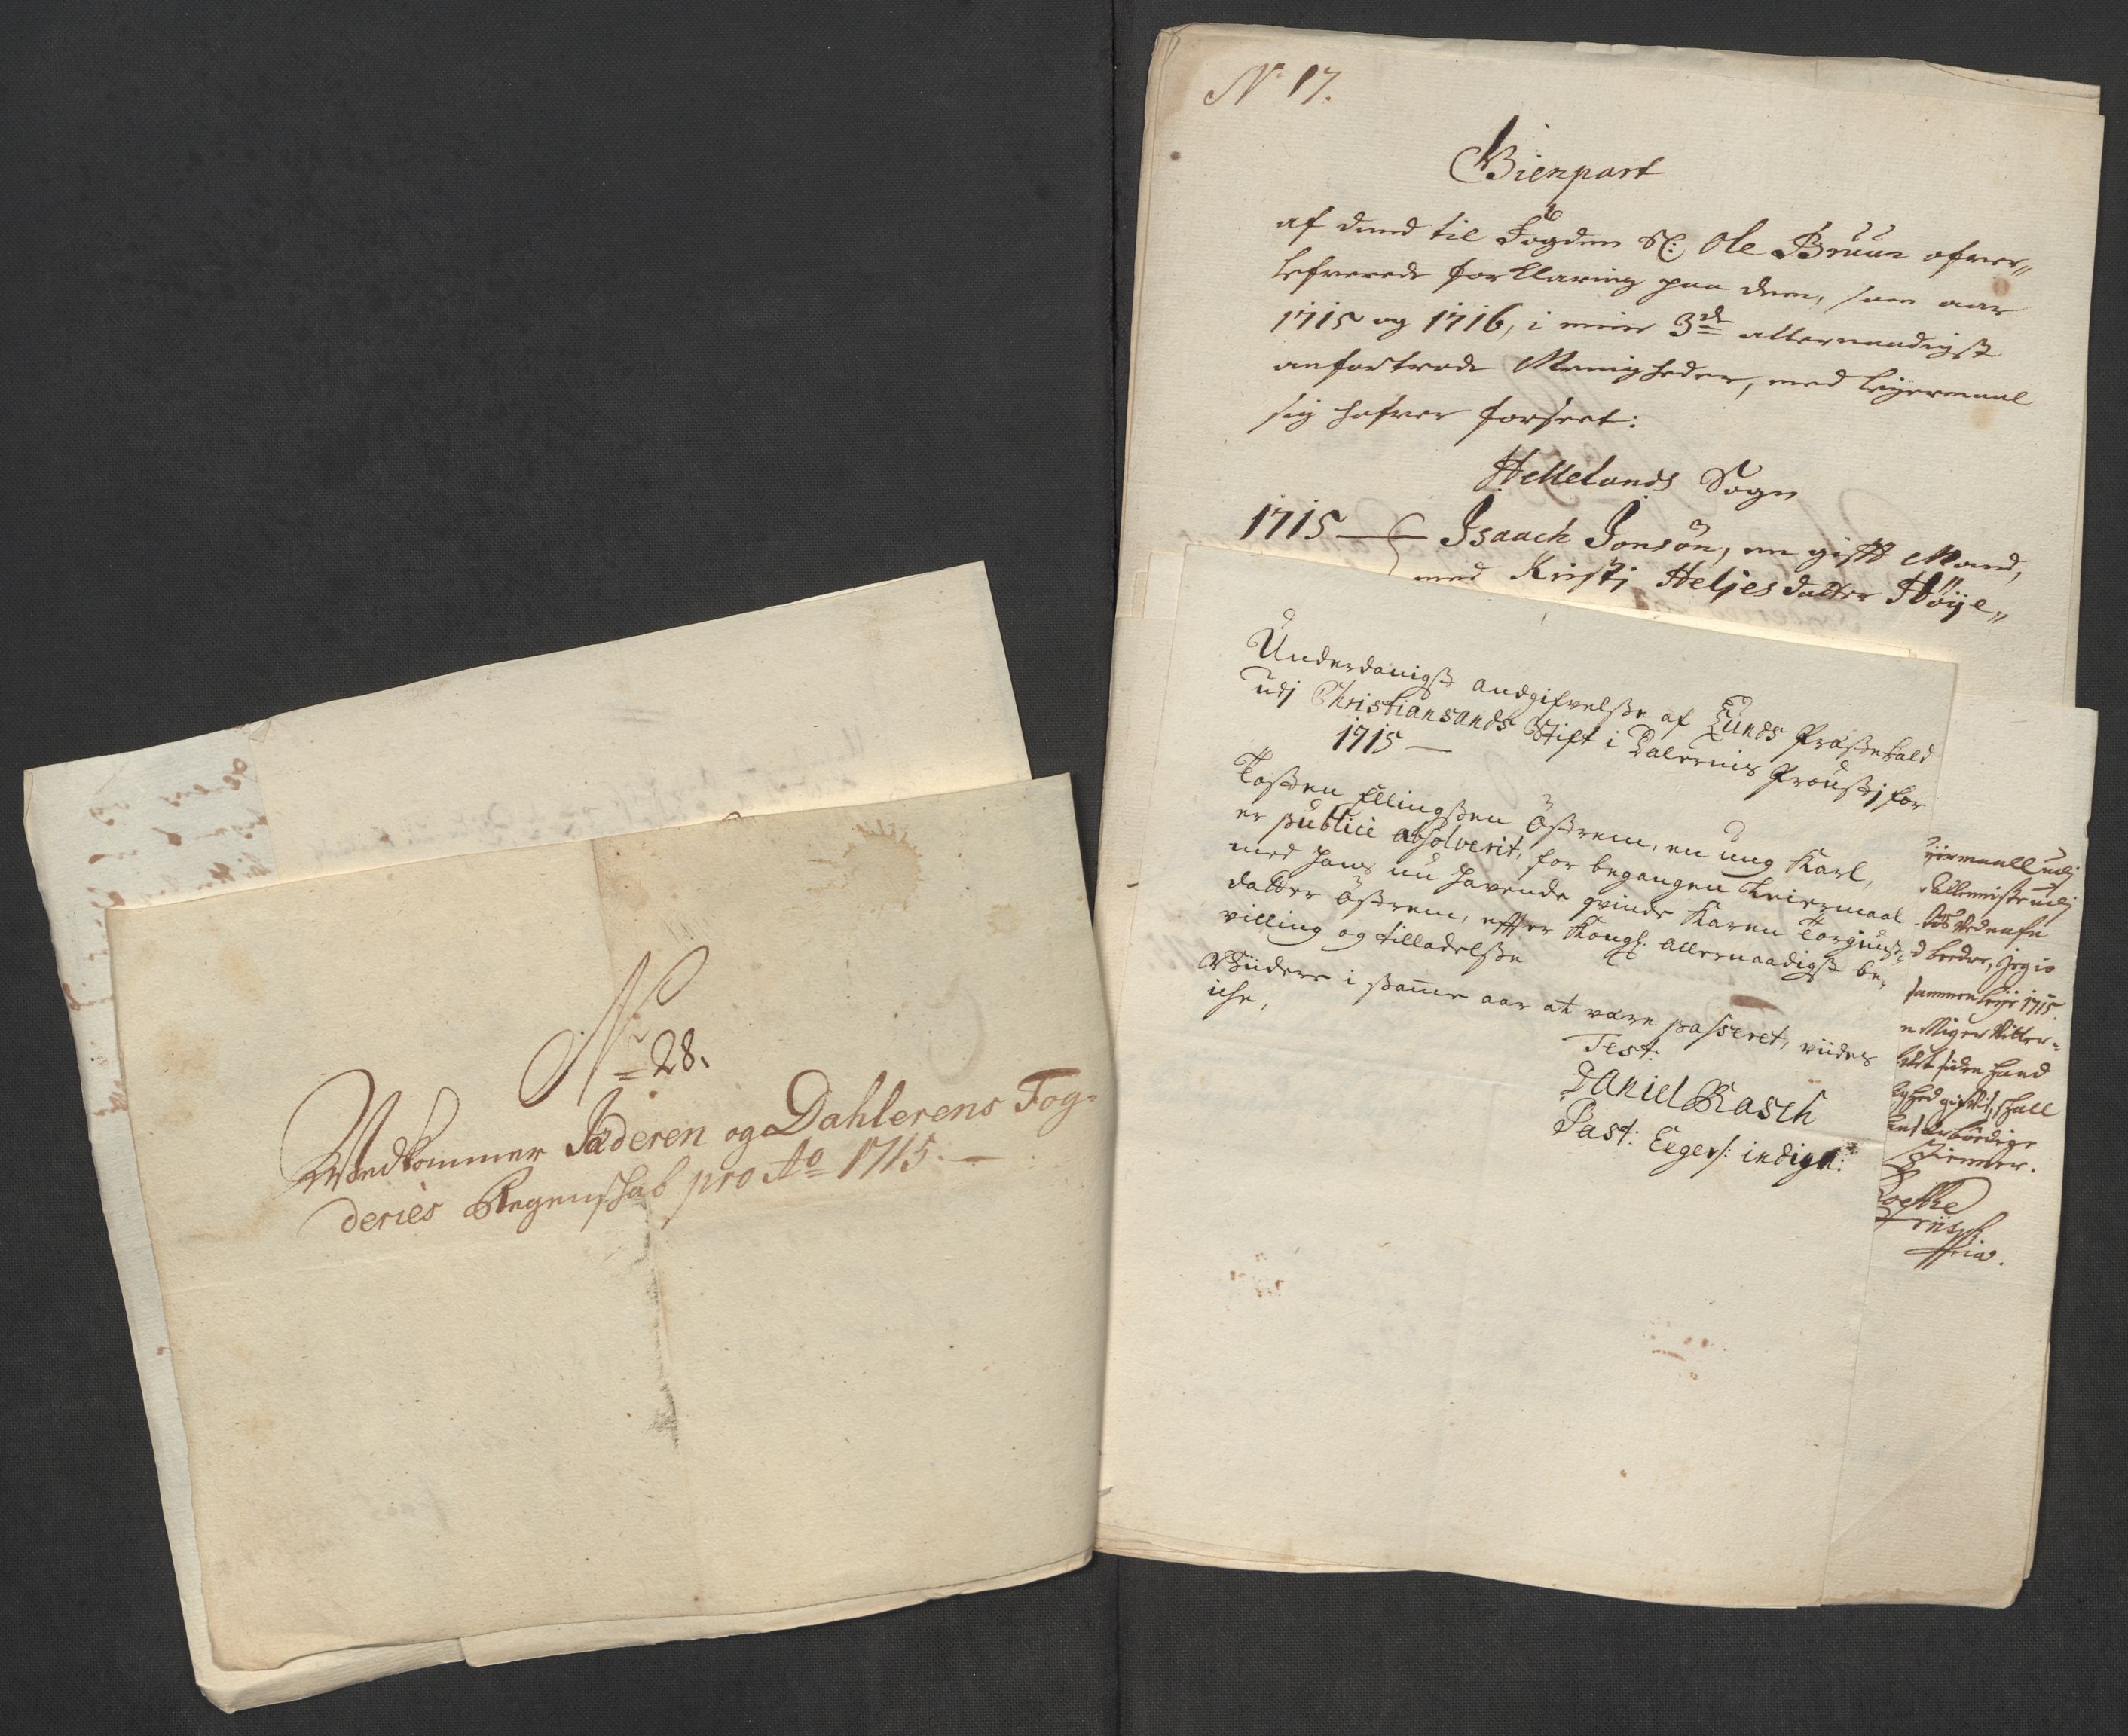 No 28.
Vedkommer Jæderen og Dahlerens Fog-
deries Regenskab pro Ao 1715.
No 17.
Gienpart
af dend til Fogden Sl: Ole Bruun ofver-
lefverede forklaring paa dem, som aar
1715 og 1716, i mine 3de allernaadigst
anfortrode Menigheder, med leyermaal
sig hafver forseet:
Hellelands Sogn
1715 — Isaach Jonsøn, en gifft Mand,
med Kristj Heljesdatter Høÿe-
Underdanigst andgifvelsse af Lunds Præstekald
udj Christiansands Stift i Dalernis Proustj for
1715 —
Tosten Ellingssen Østrem, en ung Karl,
er publicè absolverit, for begangen Leiermaal
med hans nu havende qvinde Karen Torgiuls-
datter Østrem, effter Kongl. allernaadigst be-
villing og tilladelsse
Viidere i ssamme aar at være passeret, viides
iche,
Test:
Daniel Rasch
Past: Eegers: indign:
ijermaall udj
d bedre, Jegio
sammenleÿe 1715.
det siden hand
lighed gifvit, skall
tienner.